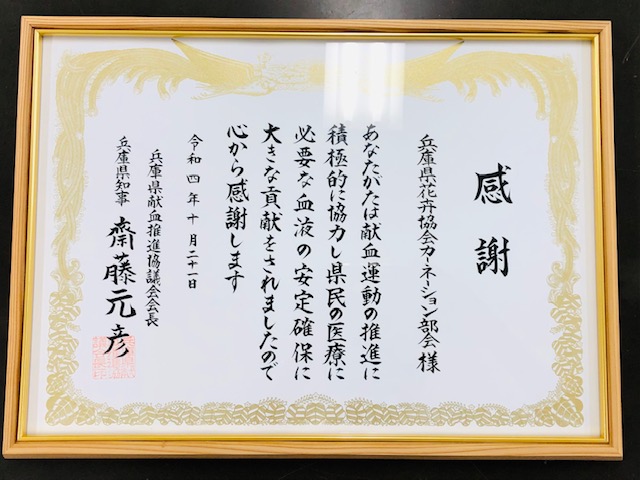 感謝
兵庫県花卉協会カーネーション部会様
あなたがたは献血運動の推進に
積極的に協力し県民の医療に
必要な血液の安定確保に
大きな貢献をされましたので
心から感謝します
令和四年十月二十一日
兵庫県献血推進協議会会長
兵庫県知事 齋藤元彦